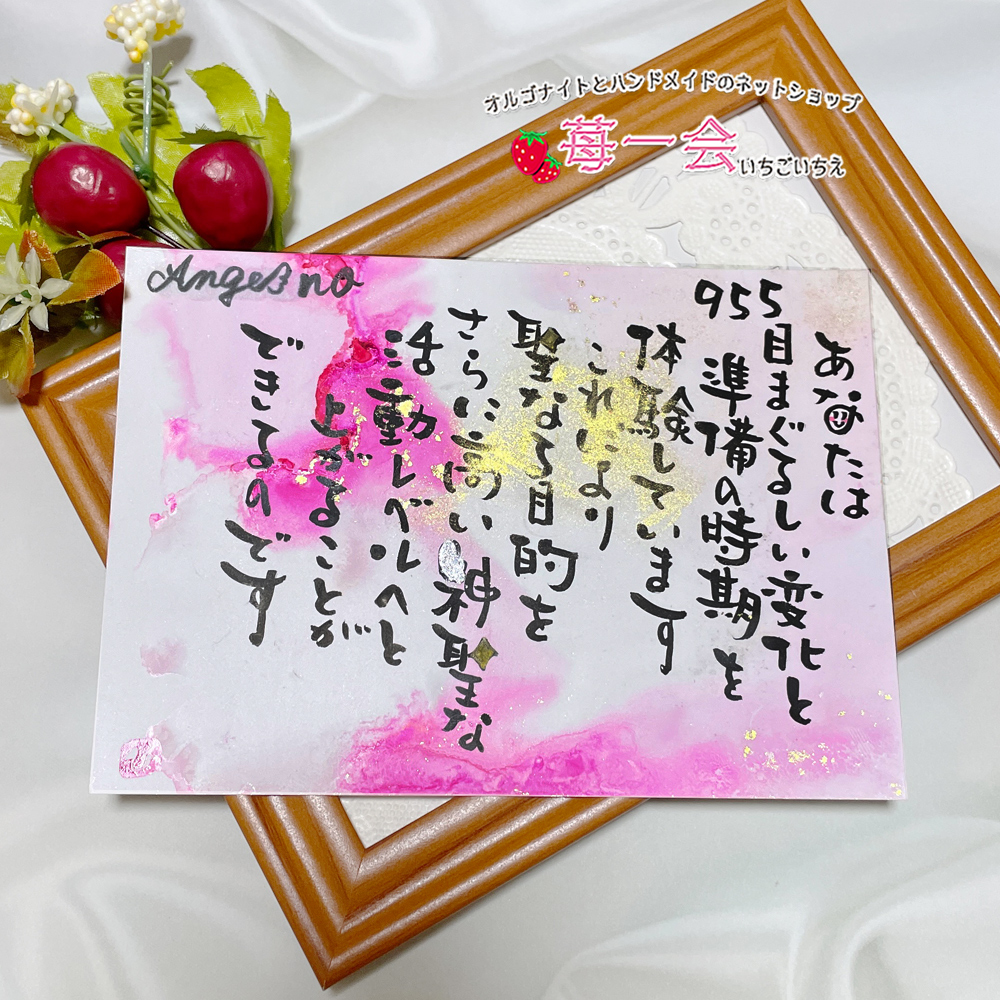 オルゴナイトとハンドメイドのネットショップ
苺一会
いちごいちえ
955
あなたは
目まぐるしい変化と
準備の時期を
体験しています
これにより
聖なる目的を
さらに高い神聖な
活動レベルへと
上がることが
できるのです
Angel no